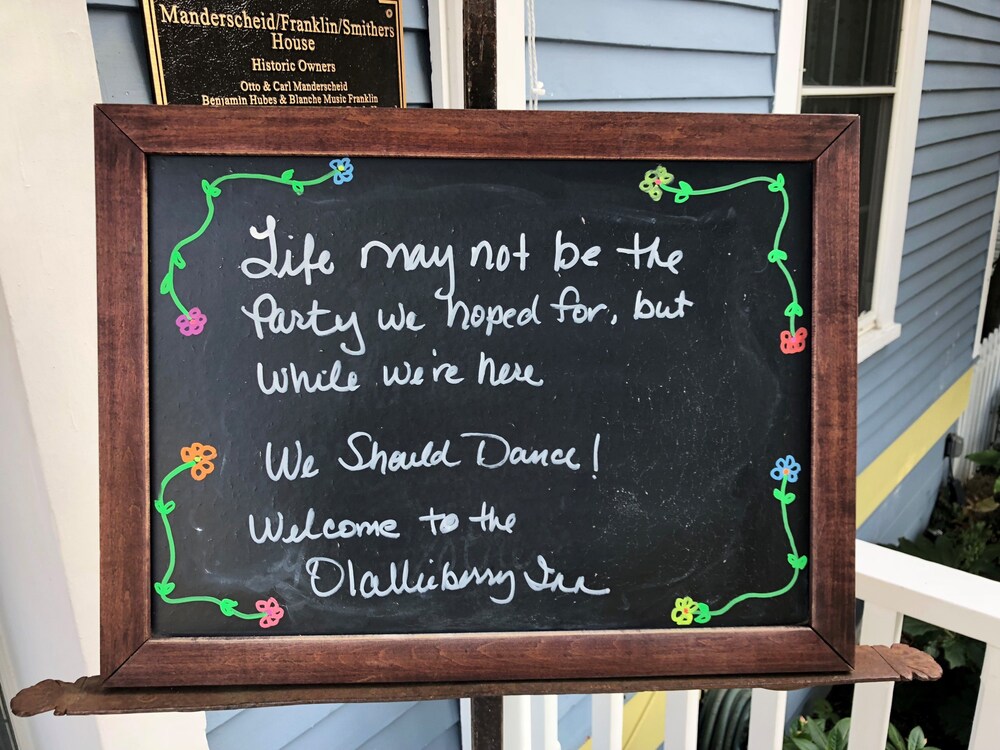 Manderscheid/Franklin/Smithers
House
Historic Owners
Otto & Carl Manderscheid
Benjamin Hubes & Blanche Music Franklin
Life may not be the
Party we hoped for, but
While we're here
We Should Dance!
Welcome to the
Olallieberry Inn